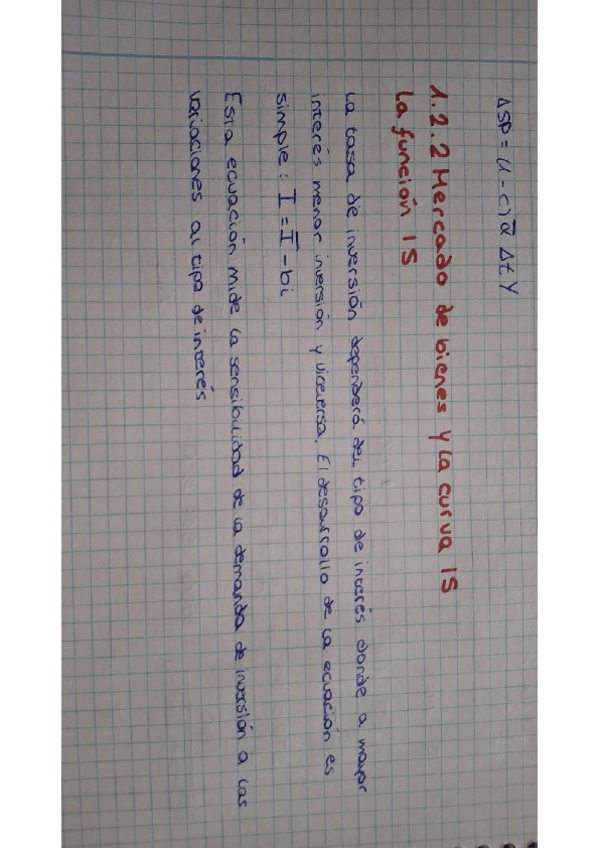 ΔSP = (1-c) ᾱ Δt Y
1.2.2 Mercado de bienes y la curva IS
La función IS
La tasa de inversión dependerá del tipo de interés donde a mayor
interés menor inversión y viceversa. El desarrollo de la ecuación es
simple: I = Ī - bi
Esta ecuación mide la sensibilidad de la demanda de inversión a las
variaciones al tipo de interés